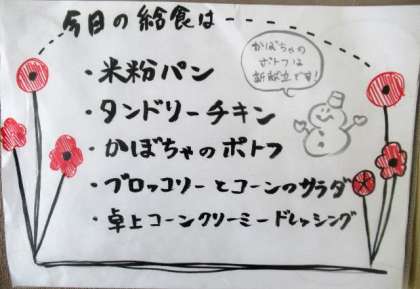 今日の給食は
かぼちゃの
ポトフは
新献立です!
・米粉パン
・タンドリーチキン
・かぼちゃのポトフ
・ブロッコリーとコーンのサラダ
・卓上コーンクリーミードレッシング